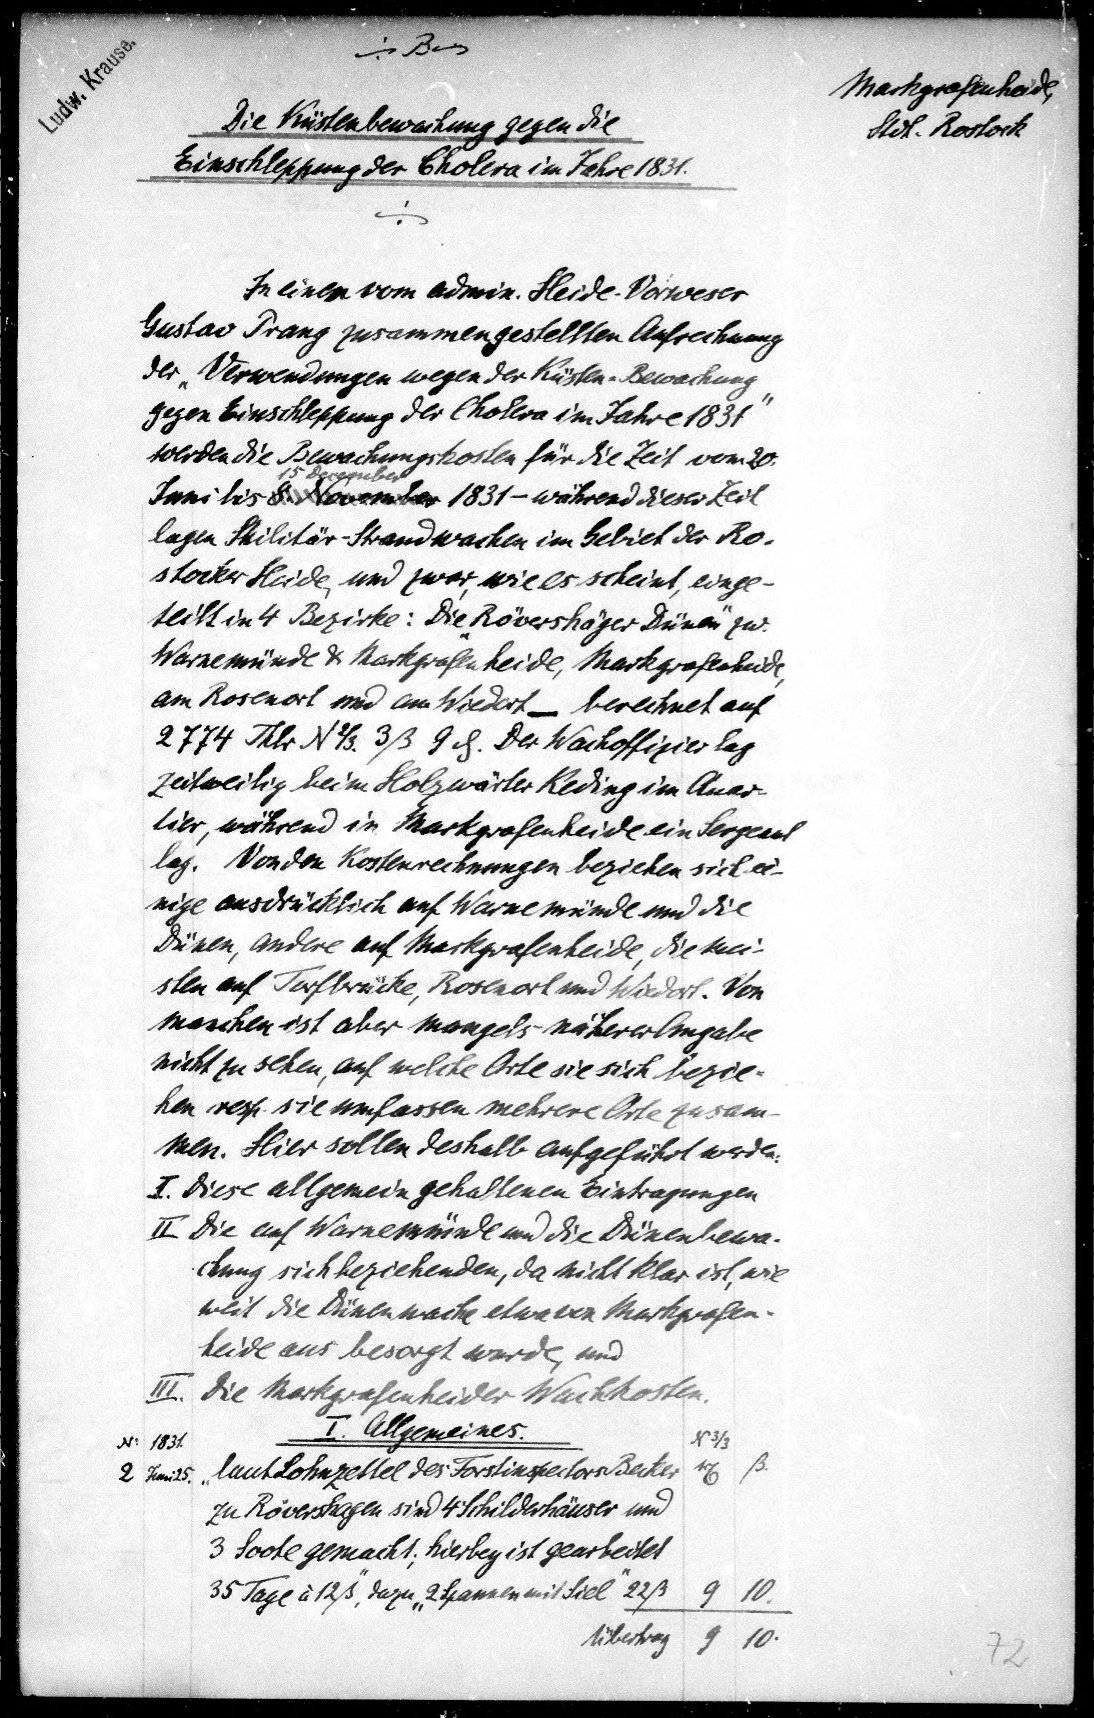 Ludw. Krause.
Markgrafenheide,
Stdt. Rostock
Die Küstenbewachung gegen die
Einschleppung der Cholera im Jahre 1831.
In einem vom admin. Heide-Vorweser
Gustav Prang zusammengestellten Aufrechnung
der „Verwendungen wegen der Küsten-Bewachung
gegen Einschleppung der Cholera im Jahre 1831"
werden die Bewachungskosten für die Zeit vom 20.
15 Dezember
Juni bis 8. November 1831 – während dieser Zeit
lagen Militär-Strandwachen im Gebiet der Ro-
stocker Heide, und zwar, wie es scheint, einge-
teilt in 4 Bezirke: Die „Rövershäger Dünen" zw.
Warnemünde & Markgrafenheide, Markgrafenheide,
am Rosenort und am Wiedort – berechnet auf
2774 Thlr N 2/3. 3 ß 9 ₰. Der Wachoffizier lag
zeitweilig beim Holzwärter Reding im Quar-
tier, während in Markgrafenheide ein Sergeant
lag. Von den Kostenrechnungen beziehen sich ei-
nige ausdrücklich auf Warnemünde und die
Dünen, andere auf Markgrafenheide, die mei-
sten auf Torfbrücke, Rosenort und Wiedort. Von
manchen ist aber mangels näherer Angabe
nicht zu sehen, auf welche Orte sie sich bezie-
hen resp. sie umfassen mehrere Orte zusam-
men. Hier sollen deshalb aufgeführt werden:
I. Diese allgemein gehaltenen Eintragungen
II Die auf Warnemünde und die Dünenbewa-
chung sich beziehenden, da nicht klar ist, wie
weit die Dünenwache etwa von Markgrafen-
heide aus besorgt wurde, und
III. Die Markgrafenheider Wachkosten.
I. Allgemeines.
No: 1831. N 2/3
2 Juni 25. „laut Lohnzettel des Forstinspectors Becker ß.
zu Rövershagen sind 4 Schilderhäuser und
3 Soote gemacht; hierbey ist gearbeitet
35 Tage à 12 ß", dazu „2 Spannen mit Siel" 22 ß 9 10.
Übertrag 9 10.
72